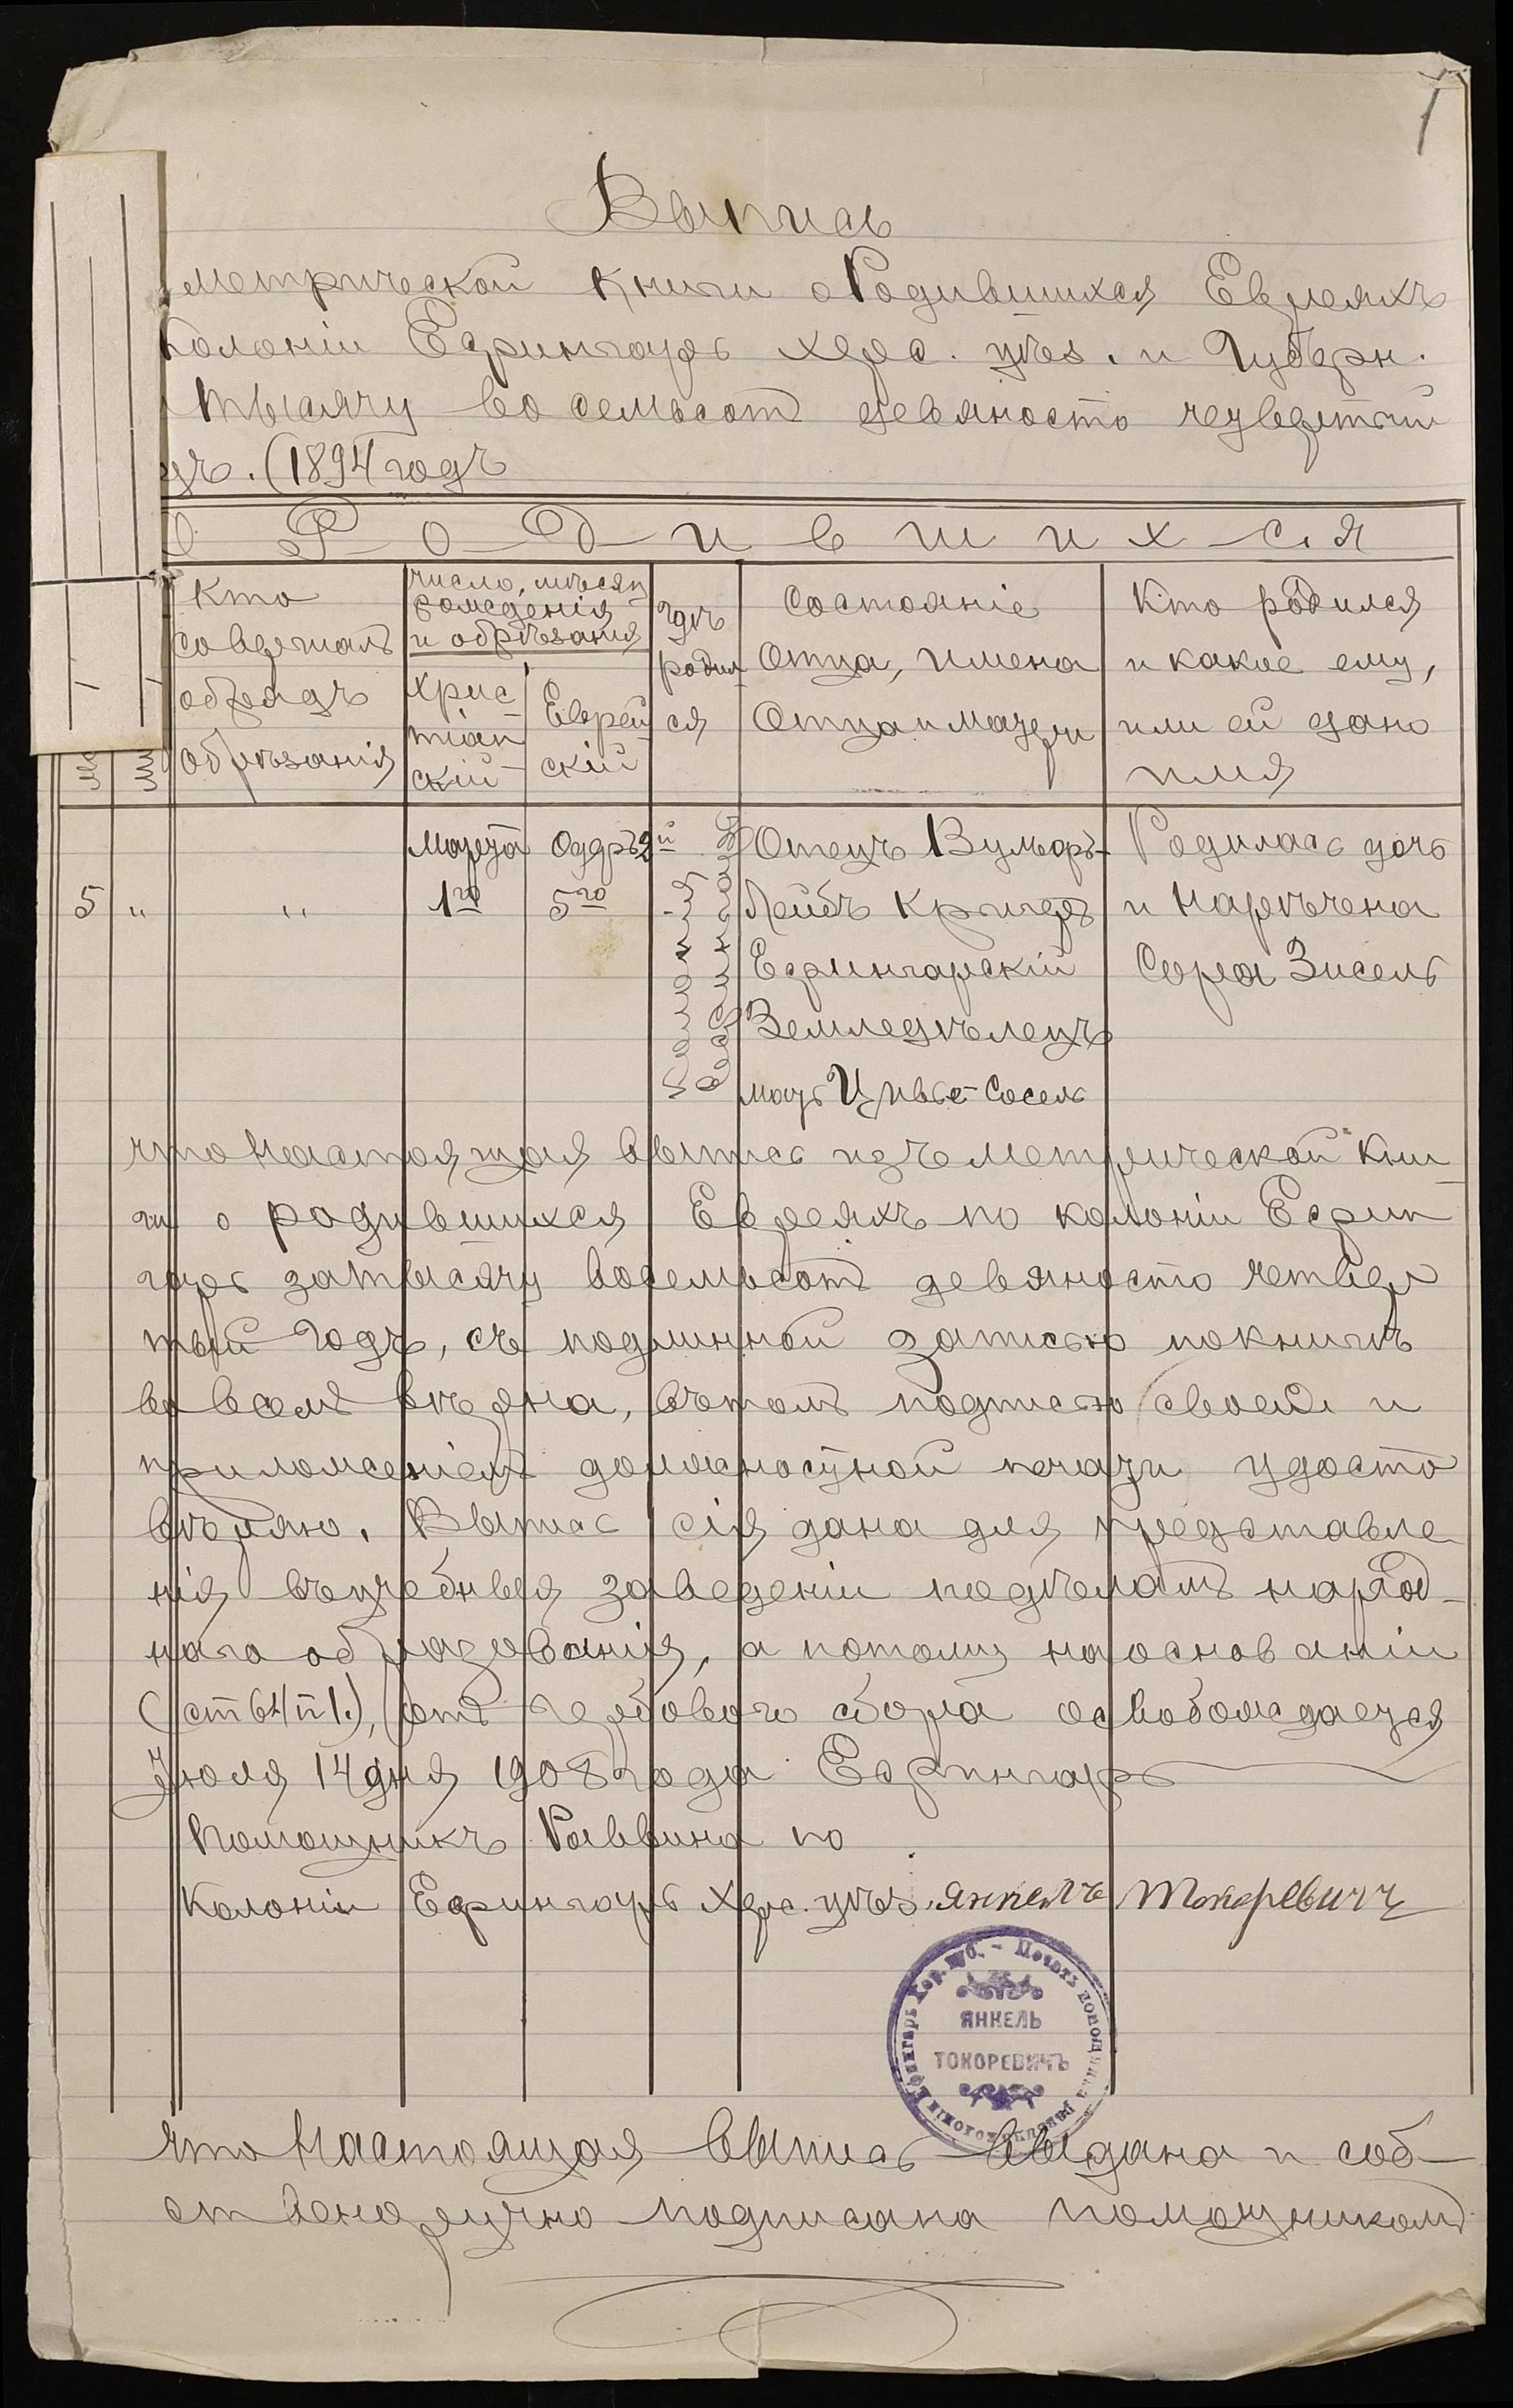 1
Выпись
метрической книги о Родившихся Евреяхъ
колоніи Ефингаръ Херс. уѣз. и Губерн.
тысячу восемьсотъ девяносто четвертый
дъ. (1894 годъ
О Р о д и в ш и х с я
Кто совершалъ обрядъ обрѣзанія
число, мѣсяц рожденія и обрѣзанія
Христіанскій
Еврейскій
гдѣ родился
Состояніе Отца, имена Отца и матери
Кто родился и какое ему, или ей дано имя
Марта Оддръ 2й Отецъ Вульфъ- Родилась дочь
5 " " 1го 5го Лейбъ Кригеръ и наречена
Ефингарскій Сора Зисель
Земледѣлецъ
мать Цивье-Сосель
что настоящая выпись изъ метрической кни-
ги о родившихся Евреяхъ по колоніи Ефин
гаръ за тысячу восемьсотъ девяносто четвер
тый годъ, съ подлинной записью по книгѣ
во всемъ вѣрна, въ томъ подписью своей и
приложеніемъ должностной печати удосто
вѣряю. Выпись сія дана для представле
нія въ учебныя заведеніи по дѣламъ народ-
наго образованія, а потому на основаніи
(ст 64 п 1.), отъ гербоваго сбора освобождается
Іюля 14 дня 1908 года Ефингаръ
Помощникъ Раввина по
Колоніи Ефингаръ Херс. уѣз. Янкель Токаревичъ
Печать помощника раввина колоніи Ефингаръ Хер. губ. –
ЯНКЕЛЬ
ТОКОРЕВИЧЪ
что настоящая выпись выдана и соб-
ственоручно подписана помощникомъ